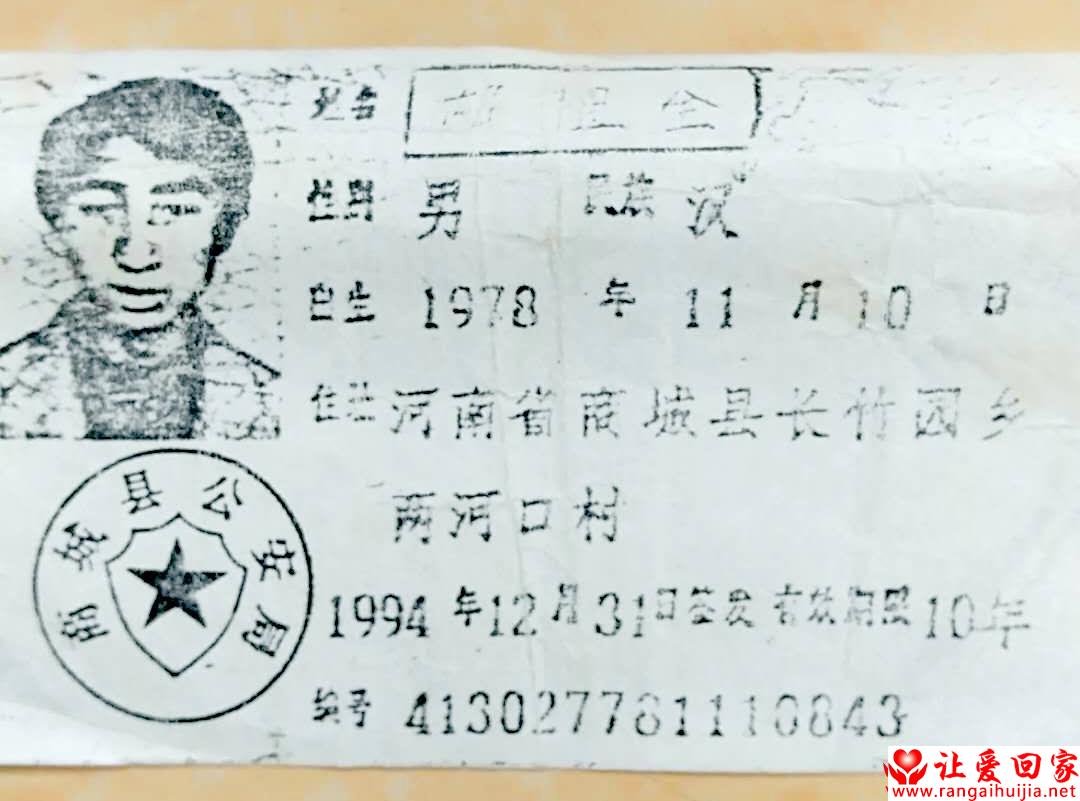 姓名 全
性别 男 民族 汉
出生 1978 年 11 月 10 日
住址 河南省商城县长竹园乡
两河口村
商城县公安局
1994 年 12 月 31 日签发 有效期限 10年
编号 413027781110843
让爱回家
www.rangaihuijia.net